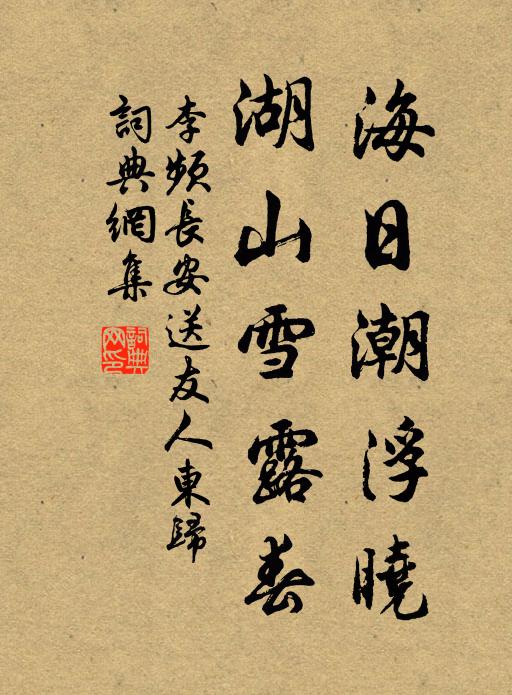 海日潮浮曉
湖山雪露春
李頻長安送友人東歸
詞典網集
詞典
网印